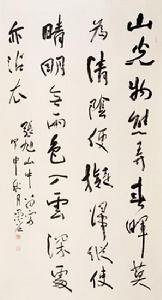 山光物態弄春暉莫
為清陰便擬歸縱使
晴明無雨色入雲深處
亦沾衣
張旭山中留客
甲申秋月